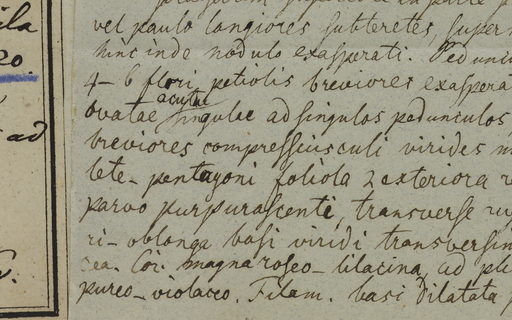 ila
eo.
ad
vel paulo longiores subteretes, super
hinc inde nodulo exasperati. Pedun
4-6 flori, petiolis breviores exaspera
acutae
Ovatae singulae ad singulos pedunculos
breviores compressiusculi virides
lete-pentagoni foliola 2 exteriora
parvo purpurascenti, transverse
ri-oblonga basi viridi transversim
cea. Cor. magna roseo-lilacina, ad
pureo-violaceo. Filam. basi dilatata